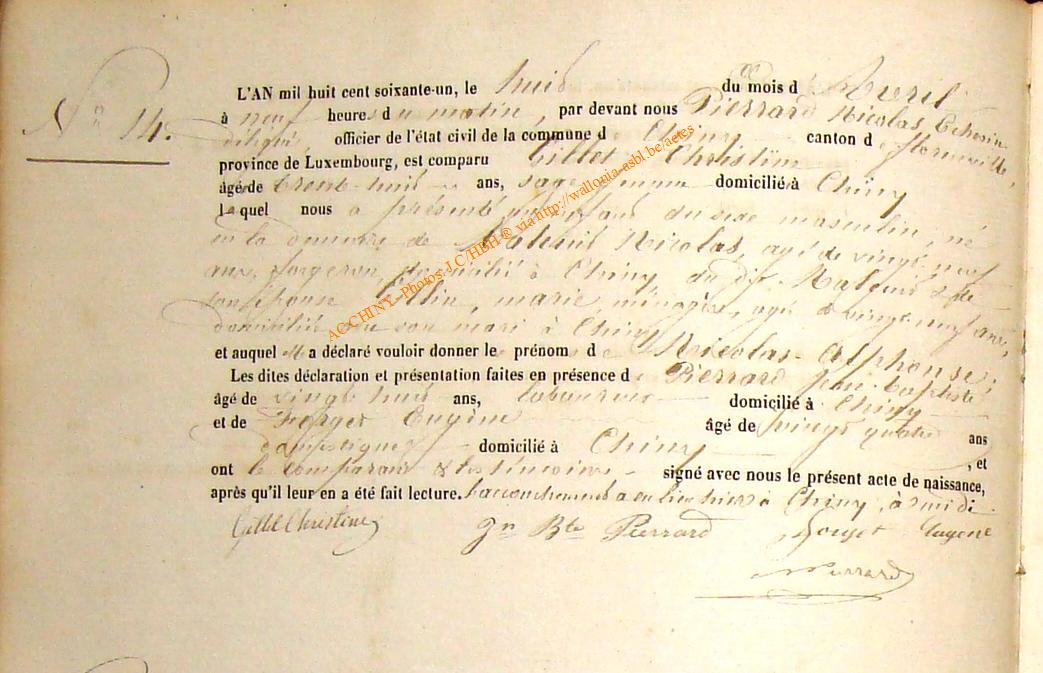 N° 14.
L'AN mil huit cent soixante-un, le huit du mois d'Avril
à neuf heures du matin, par devant nous Pierrard Nicolas Echevin
délégué, officier de l'état civil de la commune de Chiny canton de Florenville,
province de Luxembourg, est comparu Gillet Christine
âgée de trente-huit ans, sage femme domiciliée à Chiny
laquel nous a présenté un enfant du sexe masculin, né
en la demeure de Nicolas, agé de vingt-neuf
ans, forgeron, domicilié à Chiny du dit & de
son épouse marie, ménagère, agé de vingt neuf ans,
domiciliée son mari à Chiny
et auquel elle a déclaré vouloir donner le prénom de Nicolas-Alphonse,
Les dites déclaration et présentation faites en présence de Pierrard Jean-Baptiste,
âgé de vingt huit ans, laboureur domicilié à Chiny
et de Forget Eugène âgé de vingt quatre ans
domestique domicilié à Chiny, et
ont le comparant & les témoins signé avec nous le présent acte de naissance,
après qu'il leur en a été fait lecture. L'accouchement a eu lieu hier à Chiny, à midi.
Gillet Christine Jn Bte Pierrard Forget Eugene
Pierrard
AC CHINY - Photos J.C/HBH ® via http://wallonia-asbl.be/actes